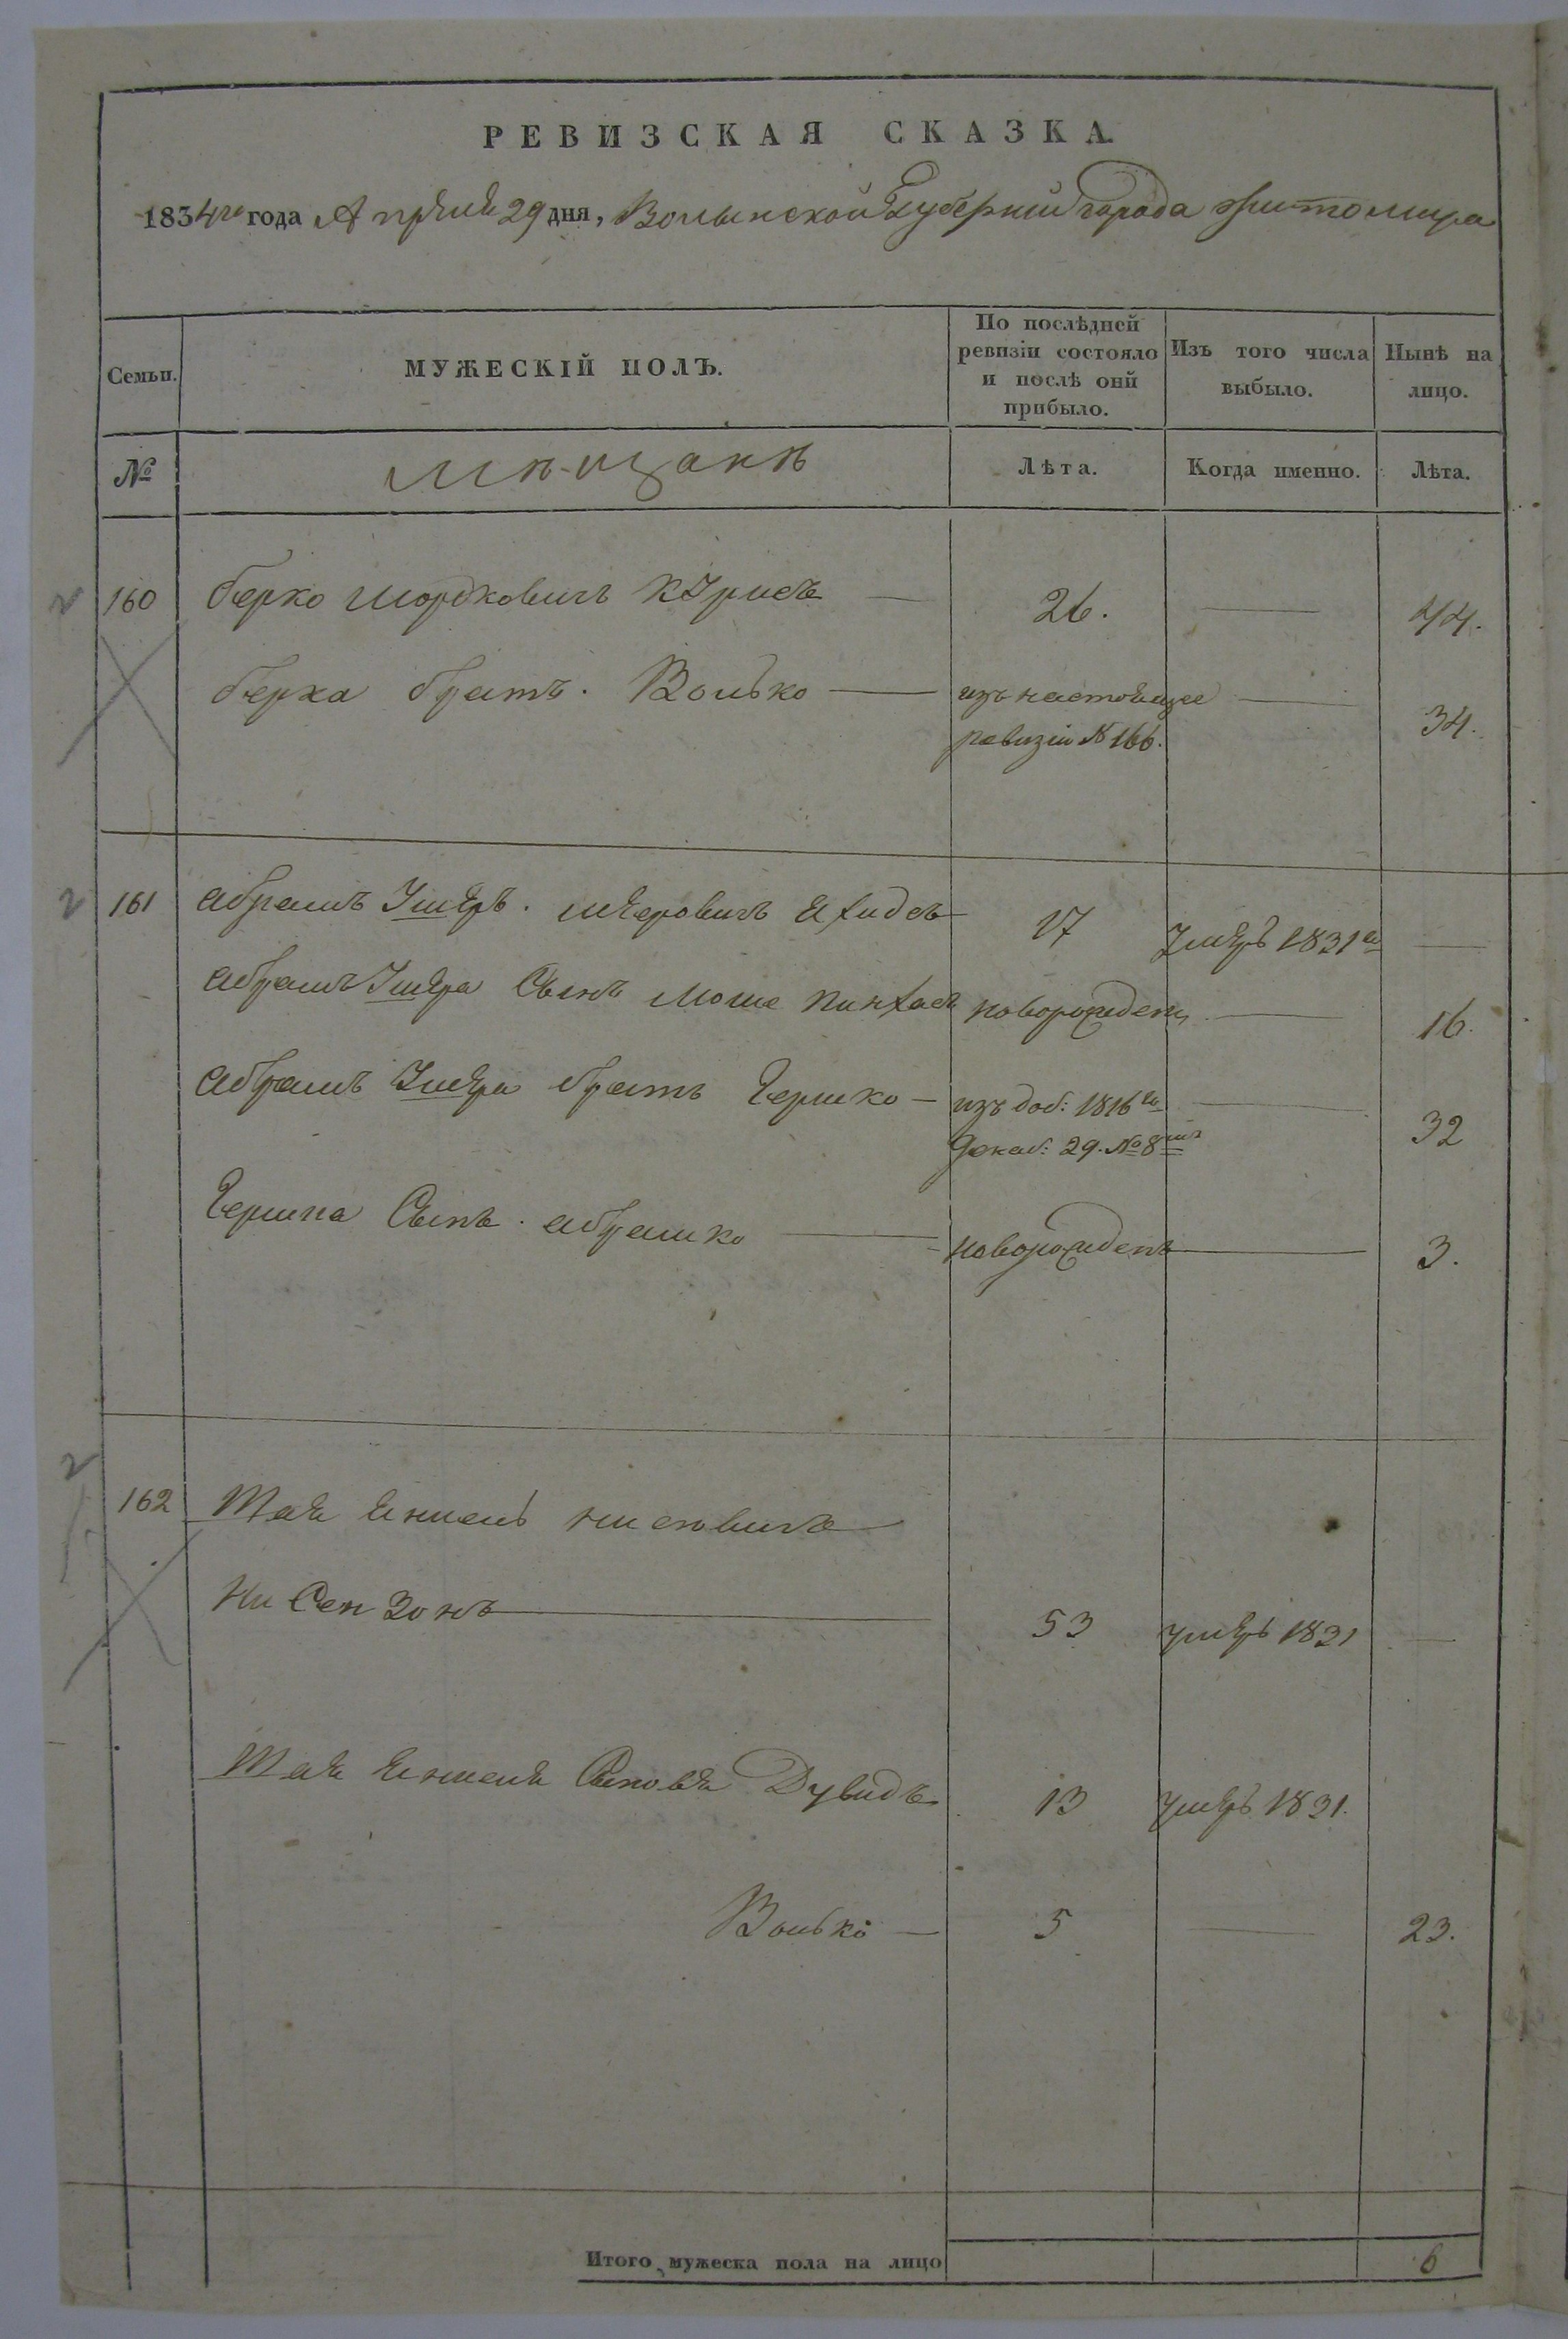 РЕВИЗСКАЯ СКАЗКА.
1834го года Апреля 29 дня, Волынской Губернии города Житомира
Семьи.
МУЖЕСКІЙ ПОЛЪ.
По послѣдней ревизіи состояло и послѣ оній прибыло.
Изъ того числа выбыло.
Нынѣ на лицо.
№
мѣщанѣ
Лѣта.
Когда именно.
Лѣта.
2 160 берко мордковичъ 26. 44.
берка братъ. Волько изъ настоящее 34.
ревизіи № 166.
2 161 абрамъ Умеръ. 17 Умеръ 1831го
абрамъ Сынъ Моше пинхасъ новорожденъ 16.
абрамъ братъ Гершко изъ доб: 1816го 32
Декаб: 29. № 8мъ
Гершка Сынъ. абрамко новорожденъ 3.
2 162 Шая
Нисензонъ 53 умеръ 1831
Шая Сыновья Дувидъ 13 умеръ 1831.
Волько 5 23.
Итого мужеска пола на лицо 6